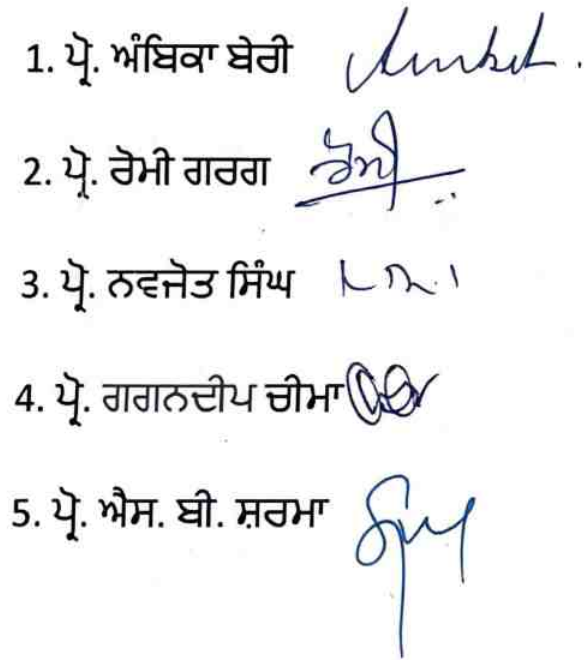 1. ਪ੍ਰੋ. ਅੰਬਿਕਾ ਬੇਰੀ
2. ਪ੍ਰੋ. ਰੋਮੀ ਗਰਗ ਰੋਮੀ
3. ਪ੍ਰੋ. ਨਵਜੋਤ ਸਿੰਘ
4. ਪ੍ਰੋ. ਗਗਨਦੀਪ ਚੀਮਾ
5. ਪ੍ਰੋ. ਐਸ. ਬੀ. ਸ਼ਰਮਾ